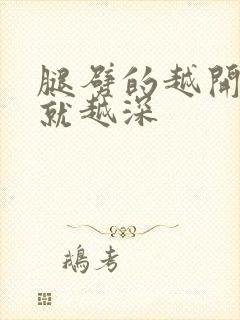 腿劈的越開
就越深
鵝考